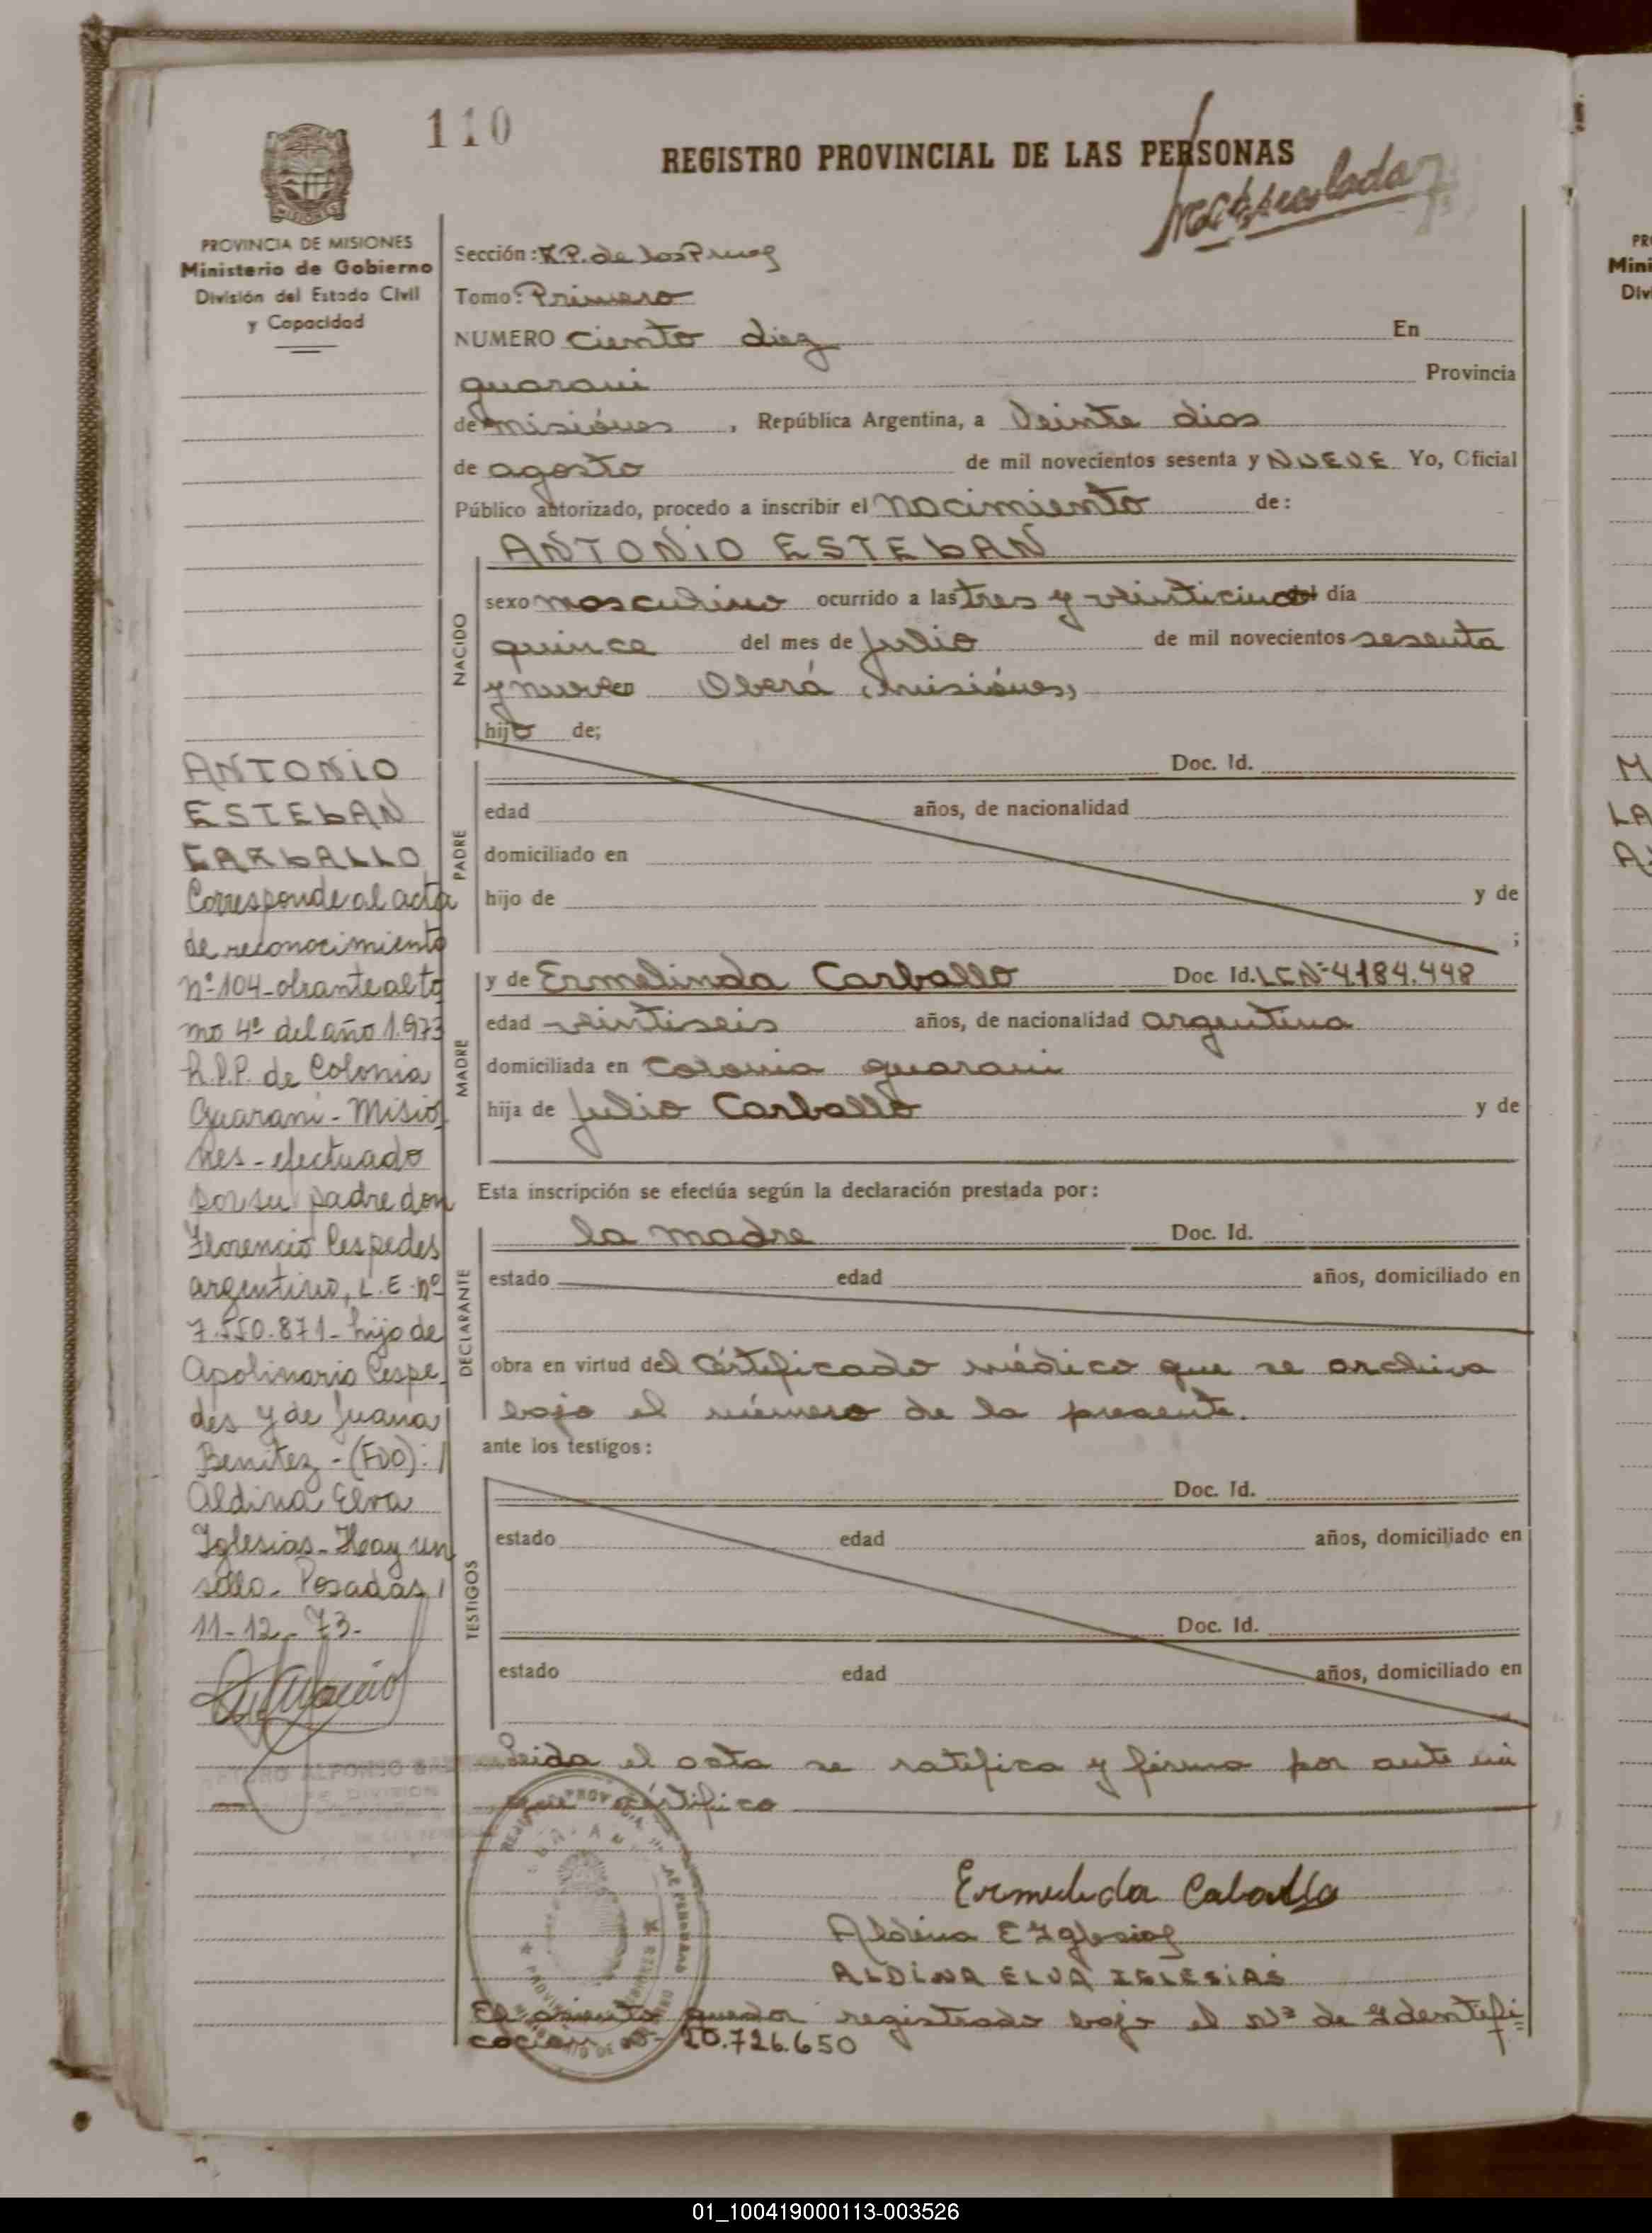 110
REGISTRO PROVINCIAL DE LAS PERSONAS
PROVINCIA DE MISIONES
Ministerio de Gobierno
División del Estado Civil
y Capacidad
Sección: R.P. de las P
Tomo: Primero
NUMERO ciento diez En
guarani Provincia
de misiónes, República Argentina, a Veinte dias
de agosto de mil novecientos sesenta y NUEVE Yo, Oficial
Público autorizado, procedo a inscribir el Nacimiento de:
ANTONIO ESTEbAN
NACIDO
sexo masculino ocurrido a las tres y veinticinco día
quince del mes de Julio de mil novecientos sesenta
y nueve Oberá (misiónes)
hijo de;
PADRE
Doc. Id.
edad años, de nacionalidad
domiciliado en
hijo de y de
;
MADRE
y de Ermelinda Carballo Doc Id. L C Nº 4.184.448
edad veintiseis años, de nacionalidad argentina
domiciliada en Colonia guarani
hija de Julio Carballo y de
Esta inscripción se efectúa según la declaración prestada por:
DECLARANTE
la madre Doc. Id.
estado edad años, domiciliado en
obra en virtud del Cértificado médico que se archiva
bajo el número de la presente.
ante los testigos:
TESTIGOS
Doc. Id.
estado edad años, domiciliado en
Doc. Id.
estado edad años, domiciliado en
Leida el acta se ratifica y firma por ante mi
que cértifico
Ermelida Caballo
Aldina E Iglesias
ALDINA ELVA IGLESIAS
El asiento quedo registrado bajo el Nº de Identifi
cacion nº 20.726.650
ANTONIO
ESTEbAN
CARbALLO
Corresponde al acta
de reconocimiento
nº 104 - obrante al to
mo 4º del año 1.973
R.P.P. de Colonia
Guarani - Misio
nes - efectuado
por su padre don
Florencio Cespedes
argentino, L. E. nº
7.550.871 - hijo de
Apolinario Cespe
des y de Juana
Benitez - (FDO): /
Aldina Elva
Iglesias - Hay un
sello - Posadas,
11-12-73-
ALFONSO
DIVISION
01_100419000113-003526